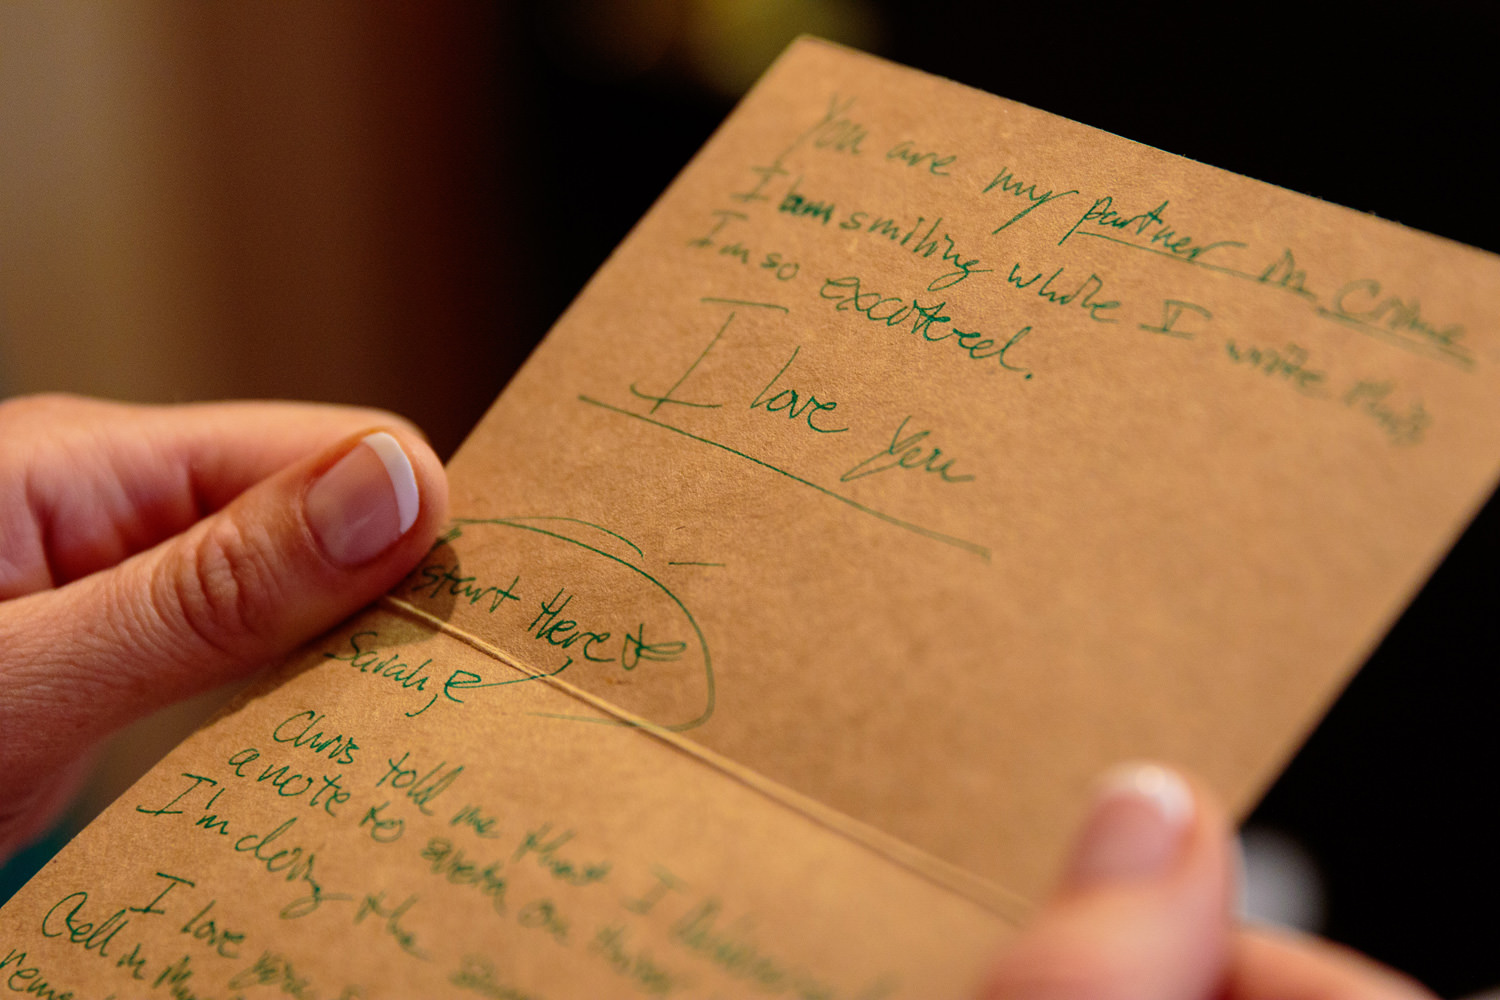 You are my partner in Crime
I am smiling while I write this
I'm so excitered.
I love you
start Here
Sarah,
Chris told me that I
a note to on
I'm doing the
I love you
Cell in my